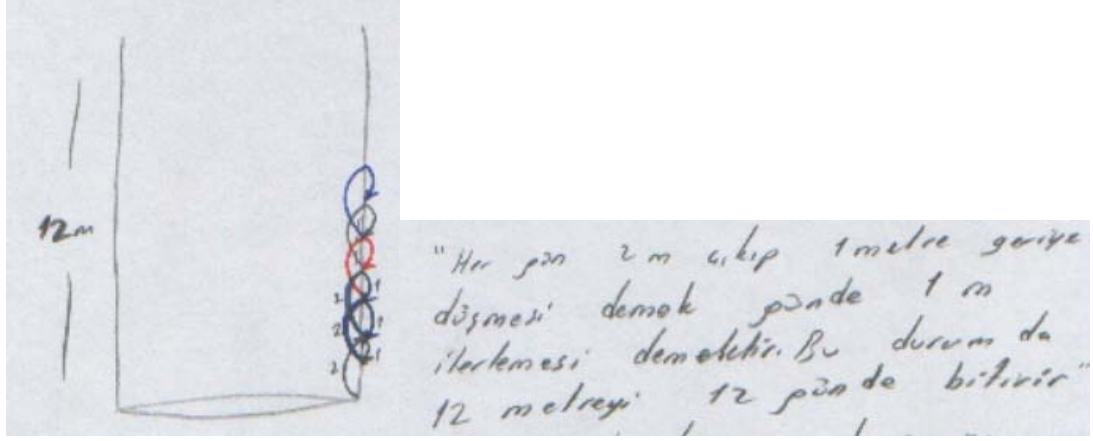 12m
2 1
2 1
2 1
"Her gün 2 m çıkıp 1 metre geriye
düşmesi demek günde 1 m
ilerlemesi demektir. Bu durum da
12 metreyi 12 günde bitirir"